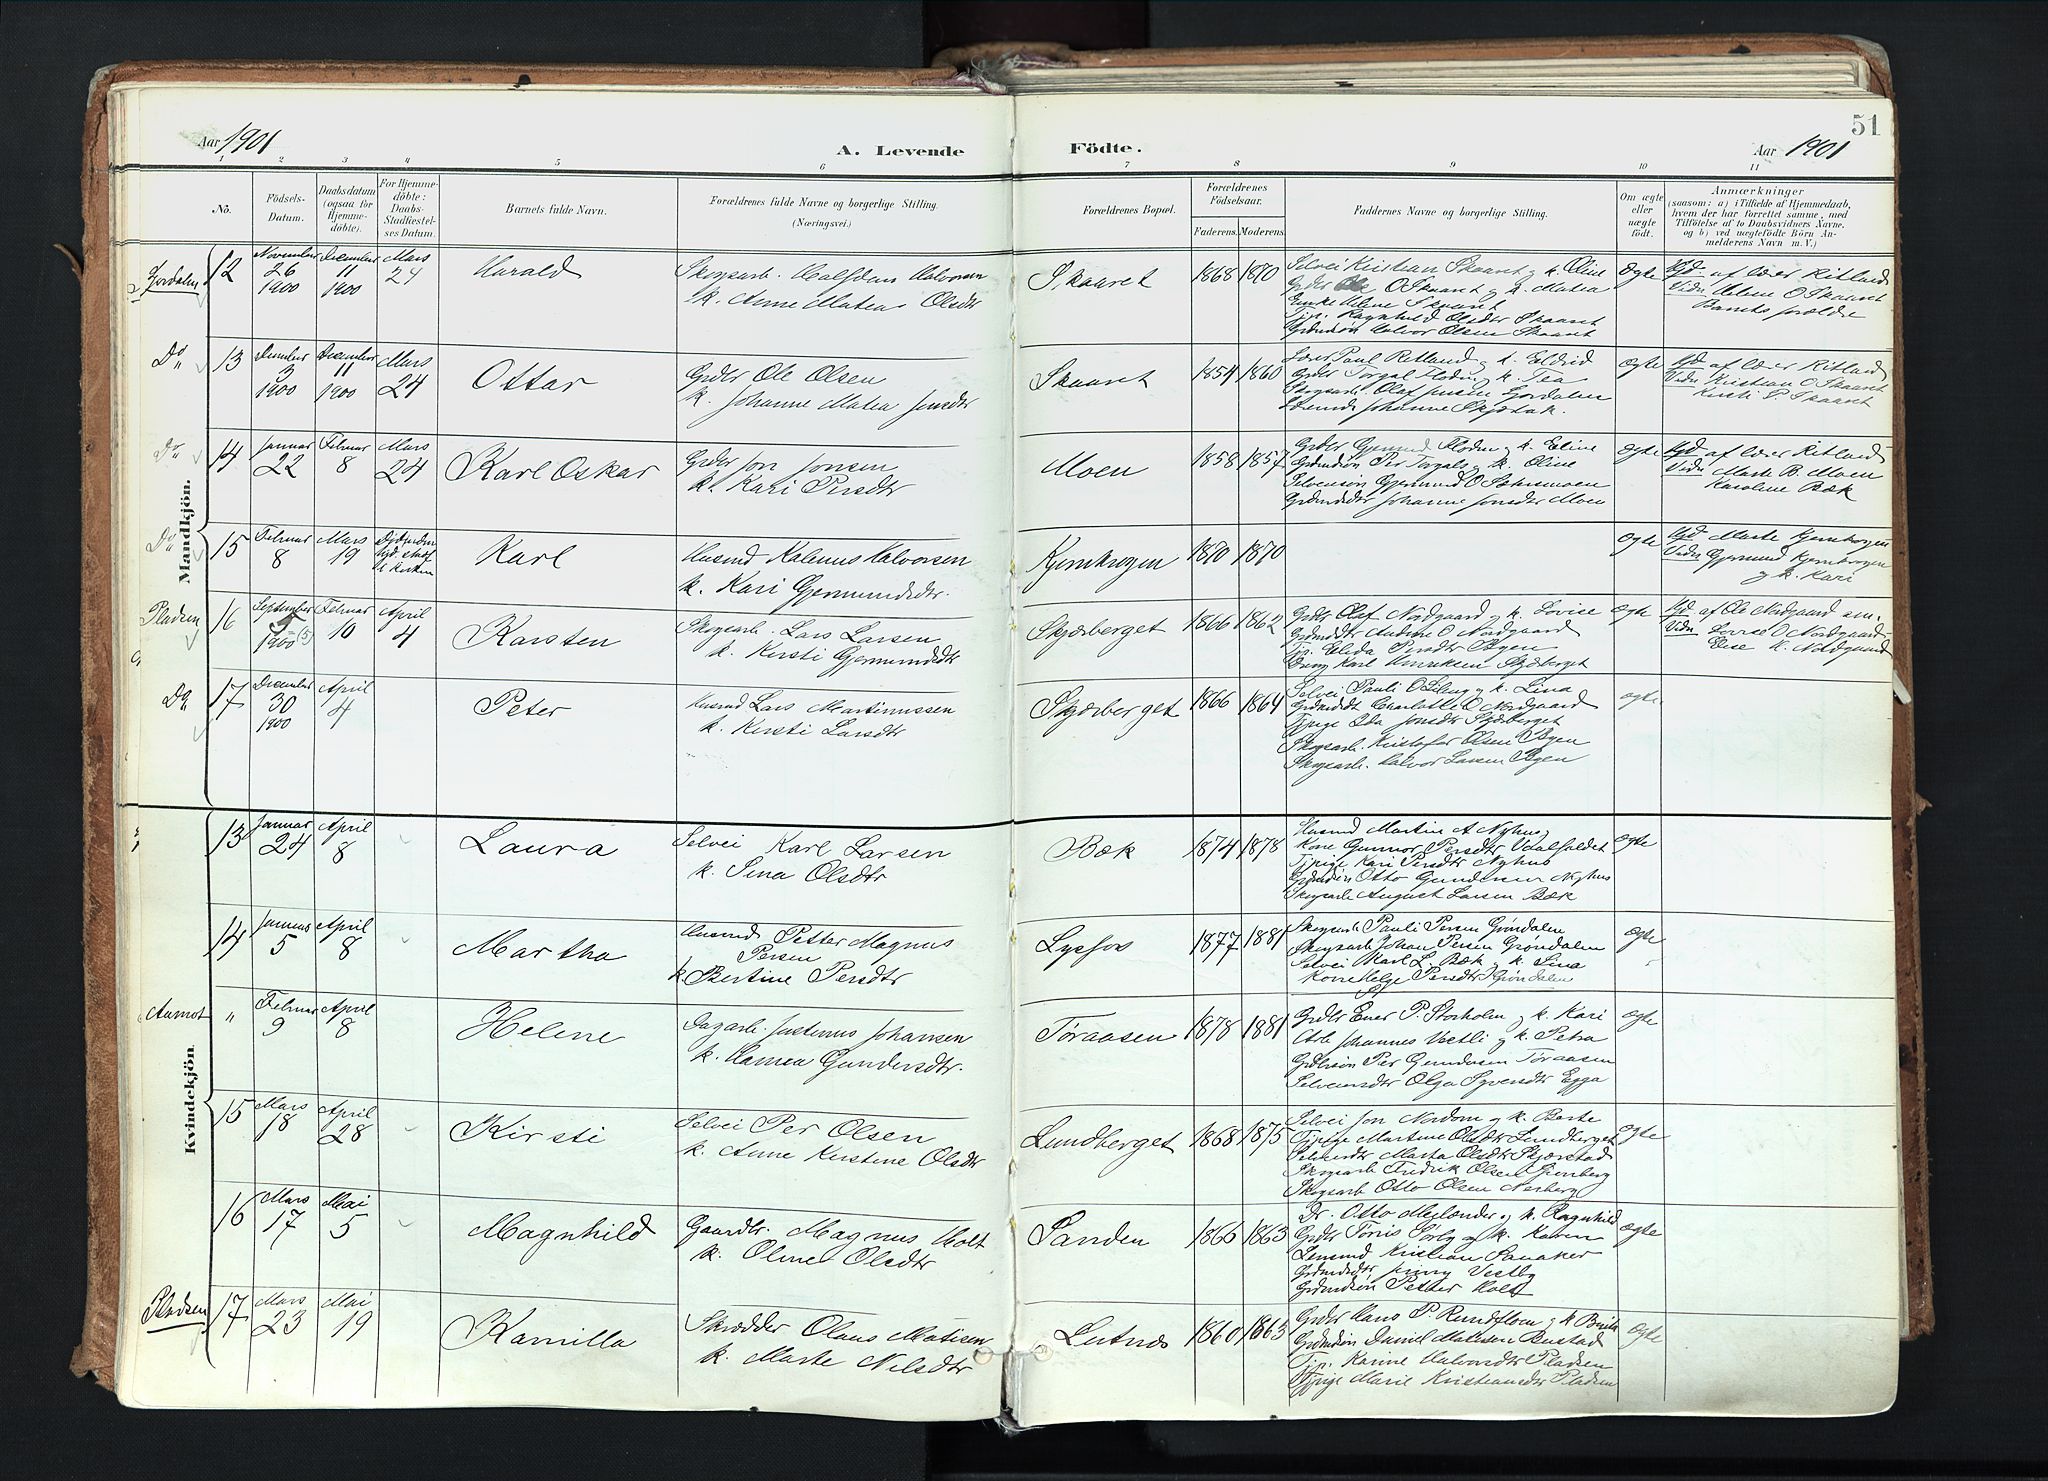 51
Aar 1901
A. Levende
Födte.
Aar 1901
1 2 3 4 5 6 7 8 9 10 11
No.
Födsels-
Datum.
Daabsdatum
(ogsaa for
Hjemme-
döbte).
For Hjemme-
döbte:
Daabs-
Stadfæstel-
ses Datum.
Barnets fulde Navn.
Forældrenes fulde Navne og borgerlige Stilling.
(Næringsvei.)
Forældrenes Bopæl.
Forældrenes
Födselsaar.
Faderens. Moderens.
Faddernes Navne og borgerlige Stilling.
Om ægte
eller
uægte
födt.
Anmærkninger
(saasom: a) i Tilfælde af Hjemmedaab,
hvem der har forrettet samme, med
Tilföielse af to Daabsvidners Navne.
og b) ved uægtefödte Börn An-
melderens Navn m. V.)
Mandkjön.
Jordalen
12
November
26
1900
December
11
1900
Mars
24
Harald
Skogsarb. Halfdan Halvorsen
k. Anne Matea Olsdtr
Skaaret
1868 1870
Selvei Kristian Skaaret og k. Oline
Grdbr Ole O Skaaret og k. Matea
Enke Helene Skaaret
Tjp. Ragnhild Olsdtr Skaaret
Grdmdsøn Halvor Olsen Skaaret
Ægte
Hjd af lærer Ritland
Vidn Helene O Skaaret
Barnets forældre
Do
13
December
3
1900
December
11
1900
Mars
24
Ottar
Grdbr Ole Olsen
k. Johanne Matea Jensdtr
Skaaret
1854 1860
Lærer Paul Ritland og k. Eldrid
Grdbr Torgal Floden og k. Tea
Skogsarb. Olaf Jensen Jordalen
Johanne
ægte
Hjd af lærer Ritland
Vidn Kristian O Skaaret
Kirsti P. Skaaret
Do
14
Januar
22
Februar
8
Mars
24
Karl Oskar
Grdbr Jon Jonsen
k. Kari Persdtr
Moen
1858 1857
Grdbr Gjermund Floden og k. Eline
Grdmdsøn Per Torgals og k. Oline
Selveiersøn Gjermund O
Grdmdsdtr Johanne Jonsdtr Moen
ægte
Hjd af lærer Ritland
Vidn Marte B. Moen
Karoline Bæk
Do
15
Februar
8
Mars
19
Karl
Husmd Kalenus Halvorsen
k. Kari Gjermundsdtr.
Kjernkrogen
1870 1870
ægte
Hjd Marte Kjernkrogen
Vidn Gjermund Kjernkrogen
og k. Kari
Pladsen
16
September
1900
Februar
10
April
4
Karsten
Skogsarb. Lars Larsen
k. Kersti Gjermundsdtr
Skjærberget
1866 1862
Grdbr Olaf Nordgaard og k. Lovise
Grdmddtr Andrine O Nordgaard
Tjp. Elida Persdtr Bygen
Dreng Karl Henriksen Skjærberget
Ægte
Hjd af Ole Nordgaard
Vidn Lovise O Nordgaard
Else K. Nordgaard
Do
17
December
30
1900
April
4
Peter
Husmd Lars Martinussen
k. Kersti Larsdtr
Skjærberget
1866 1864
Selvei Pauli O og k. Lina
Grdmdsdt Charlotte O Nordgaard
Tjpige Oda Jonsdtr Skjærberget
Skogsarb. Kristofar Olsen Bygen
Skogsarb. Halvor Larsen Bygen
ægte
Kvindekjön.
13
Januar
24
April
8
Laura
Selvei Karl Larsen
k. Sina Olsdtr
Bæk
1874 1878
Husmd Martin A Nyhus
Kone Gunnor Persdtr
Tjpige Kari Persdtr Nyhus
Grdmdsøn Otto Gundersen Nyhus
Skogsarb August Larsen Bæk
ægte
14
Januar
5
April
8
Martha
Husmd Petter Magnus
Persen
k. Bertine Persdtr
Lysfos
1877 1881
Skogsarb Pauli Persen Grøndalen
Skogsarb Johan Persen Grøndalen
Selvei Karl L. Bæk og k. Sina
Kone Helge Persdtr Grøndalen
ægte
Aamot
"
Februar
9
April
8
Helene
Dagarb. Justinus Johansen
k. Hanna Gundersdtr.
Tøraasen
1878 1881
Grdbr Ener P. Storholm og k. Kari
Arb Johannes Vestli og k. Petra
Grdbrsøn Per Gundersen Tøraasen
Selveiersdtr Olga Syversdtr Egga
ægte
15
Mars
18
April
28
Kirsti
Selvei Per Olsen
k. Anne Kerstine Olsdtr
Lundberget
1868 1875
Selvei Jon Nordom og k. Berte
Tjpige Martine Olsdtr Lundberget
Selveiersdtr Marta Olsdtr Skjærstad
Skogsarb Fredrik Olsen
Skogsarb Otto Olsen Nerberg
ægte
16
Mars
17
Mai
5
Magnhild
Gaardbr. Magnus Holt
k. Oline Olsdtr
Sanden
1866 1863
Dr. Otto Mejlænder og k. Ragnhild
Grdbr Tørris Sørby og k. Karen
Lensmd Kristian Sanaker
Grdmdsdtr Jenny Vestby
Grdmdsøn Petter Holt
ægte
Pladsen
17
Mars
23
Mai
19
Kamilla
Skrædder Olaus Matisen
k. Marte Nilsdtr
Lutnes
1860 1863
Grdbr Hans P. Rundfloen og k
Grdmdsøn Daniel Mattisen Bustad
Tjp. Karine Halvorsdtr Pladsen
Tjpige Marie Kristiansdtr Pladsen
ægte